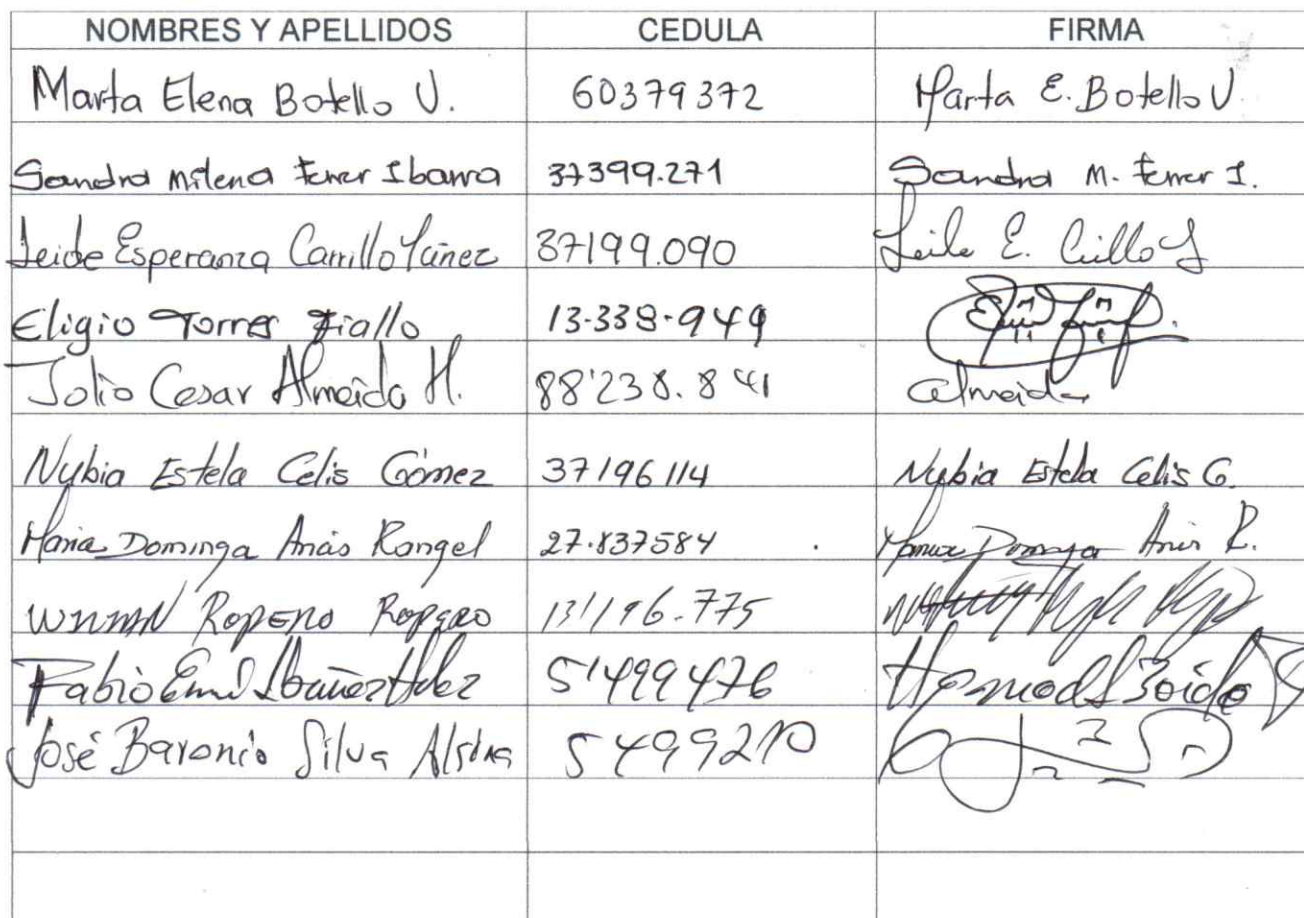 NOMBRES Y APELLIDOS CEDULA FIRMA
Marta Elena Botello U. 60379372 Marta E. Botello U.
Sandra Milena Ferrer Ibarra 37399.271 Sandra M. Ferrer I.
Leide Esperanza Carrillo Yánez 37199.090 Leide E.
Eligio Torres Fiallo 13.338.949
Jolio Cesar Almeida H. 88'238.841 Almeida
Nybia Estela Celis Gómez 37196114 Nybia Estela Celis G.
Maria Dominga Arias Rangel 27.837584 Maria Dominga Arias R.
Ropero Ropero 13'196.775
Fabio Ibañez 5'499476
José Baronio Silva Alsina 5499210